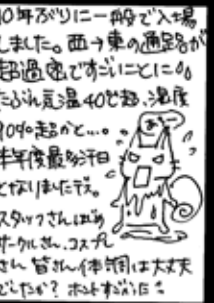 10年ぶりに一般で入場
しました。西→東の通路が
超過密ですごいことに。
たぶん気温40℃超、湿度
80%超かと…。
半年度最多汗日
となりましたデス。
スタッフさんはじめ
サークルさん、コスプレ
さん 皆さん体調は大丈夫
でしたか?ホントすごいに